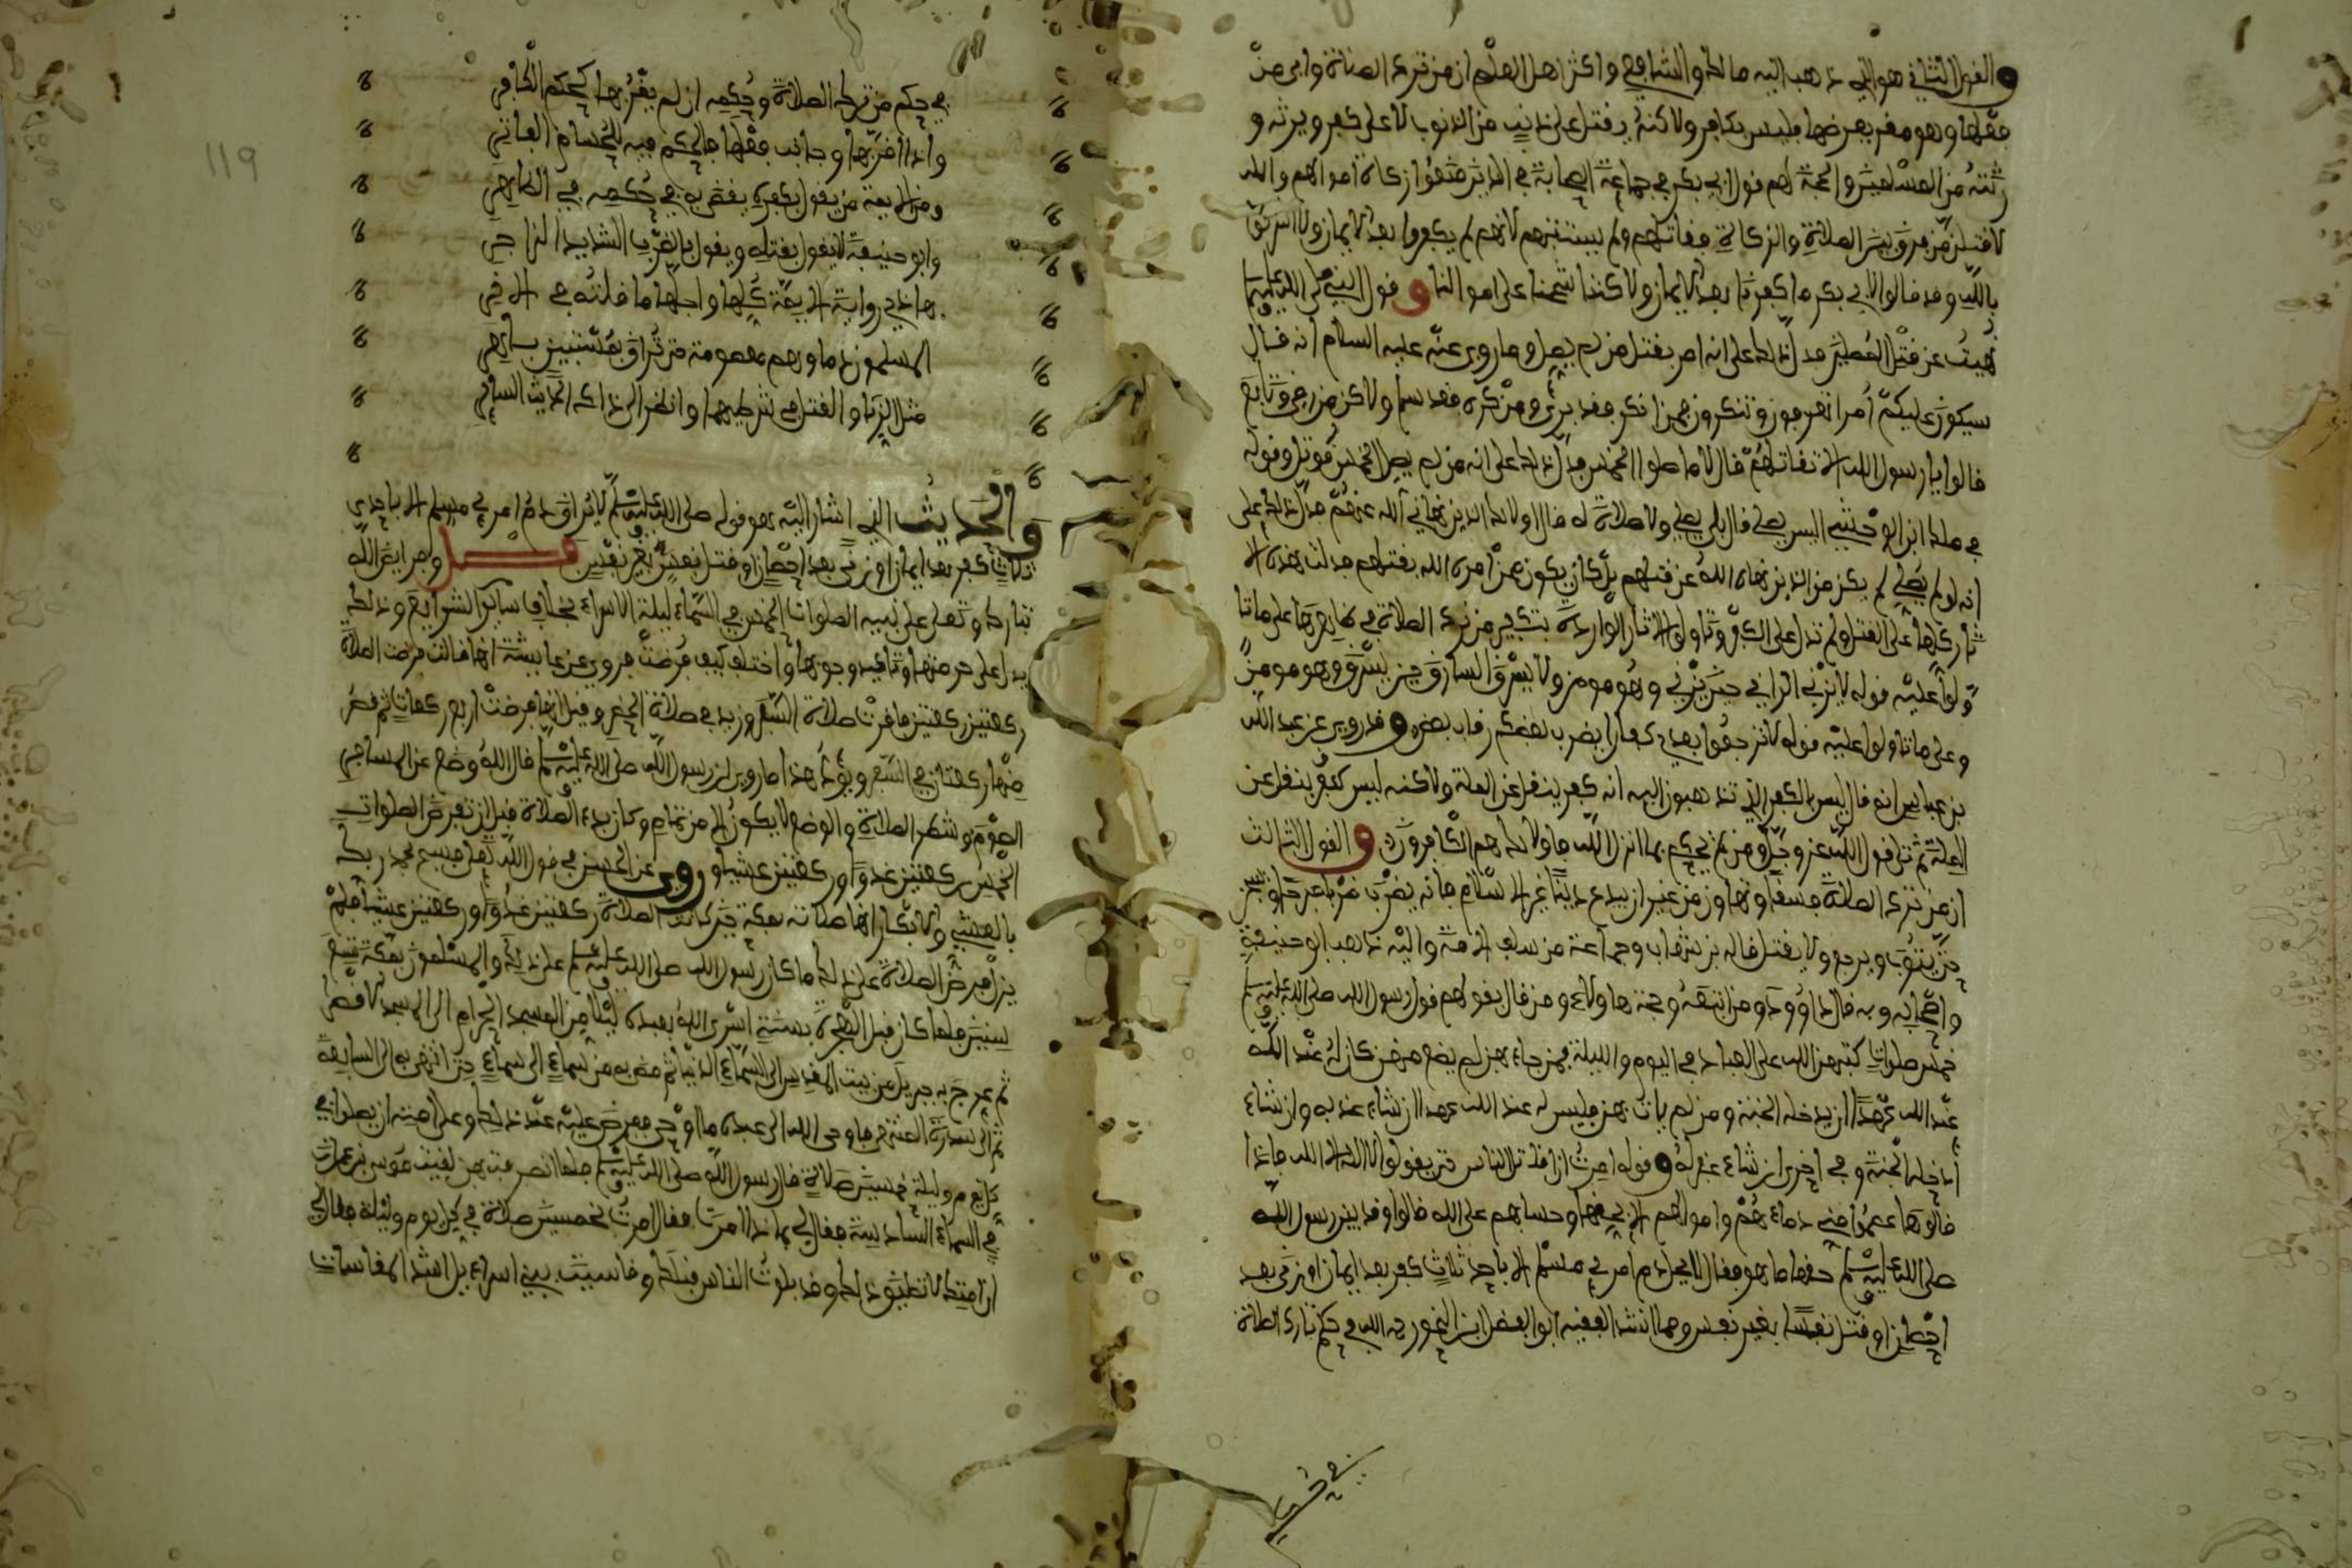 والقول الثاني هو الذي ذهب اليه مالك والشافعي واكثر اهل العلم ان من ترك الصلاة وابى من
فعلها وهو مقر بفرضها فليس بكافر ولاكنه يقتل على ذنب من الذنوب لا على كفر ويرثه و
رثته من المسلمين والحجة لهم قول ابي بكر في جماعة الصحابة في الذين منعوا زكاة اموالهم والله
لاقتلن من فرق بين الصلاة والزكاة فقاتلهم ولم يستتبهم لانهم لم يكفروا بعد الايمان ولا اشركوا
بالله وقد قالوا لابي بكر ما كفرنا بعد الايمان ولاكننا شححنا على اموالنا وقول النبي صلى الله عليه وسلم
نهيت عن قتل المصلين فدل ذلك على انه امر بقتل من لم يصل وما روي عنه عليه السلام انه قال
سيكون عليكم امرا تعرفون وتنكرون فمن انكر فقد برئ ومن كره فقد سلم ولاكن من رضي وتابع
قالوا يا رسول الله الا نقاتلهم قال لا ما صلوا الخمس فدل ذلك على انه من لم يصل الخمس قوتل وقوله
في مالك ابن الدخشم اليس يصلي قال بلى يصلي ولا صلاة له قال اولائك الذين نهاني الله عنهم فدل ذلك على
انه لو لم يصلي لم يكن من الذين نهاه الله عن قتلهم بل كان يكون ممن امره الله بقتلهم فدلت هذه الا
ثار كلها على القتل ولم تدل على الكفر وتاولوا الاثار الواردة بتكفير من ترك الصلاة في ظاهرها على ما تا
ولوا عليه قوله لا يزني الزاني حين يزني وهو مومن ولا يسرق السارق حين يسرق وهو مومن
وعلى ما تاولوا عليه قوله لا ترجعوا بعدي كفارا يضرب بعضكم رقاب بعض وقد روي عن عبد الله
بن عباس انه قال ليس بالكفر الذي تذهبون اليه انه كفر ينقل عن الملة ولاكنه ليس كفر ينقل عن
الملة ثم تلى قول الله عز وجل ومن لم يحكم بما انزل الله فاولائك هم الكافرون والقول الثالث
ان من ترك الصلاة فسقا وتهاون من غير ان يبدع دينا غير الاسلام فانه يضرب ضربا مبرحا ويسجن
حتى يتوب ويرجع ولا يقتل قاله بن شهاب وجماعة من سلف الامة واليه ذهب ابو حنيفة
واصحابه وبه قال داوود ومن اتبعه وحجة هاولاء ومن قال بقولهم قول رسول الله صلى الله عليه وسلم
خمس صلوات كتبهن الله على العباد في اليوم والليلة فمن جاء بهن لم يضع منهن كان له عند الله
عند الله عهدا ان يدخله الجنة ومن لم يات بهن فليس له عند الله عهدا ان شاء عذبه وان شاء
ادخله الجنة وفي اخرى ان شاء غفر له وقوله امرت ان اقاتل الناس حتى يقولوا لا اله الا الله فاذا
قالوها عصموا مني دماءهم واموالهم الا بحقها وحسابهم على الله قالوا وقد بين رسول الله
صلى الله عليه وسلم حقها ما هو فقال لا يحل دم امرئ مسلم الا باحد ثلاث كفر بعد ايمان او زنى بعد
احصان او قتل نفسا بغير نفس ومما انشد الفقيه ابو الفضل ابن النحوي رحمه الله في حكم تارك الصلاة
في حكم من ترك الصلاة وحكمه ان لم يقر بها كحكم الكافر
واذا اقر بها وجانب فعلها فالحكم فيه للحسام الباتر
ومن الايمة من يقول بكفره يقضي به في حكمه في الظاهر
وابو حنيفة لا يقول بقتله ويقول بالضرب الشديد الزاجر
هاذي رواية الايمة كلها واجلها ما قلته في الاخر
المسلمون دماوهم معصومة حتى تراق بمستبين باهر
مثل الزنا والقتل في شرطيهما وانظر الى ذاك الحديث الساير
والحديث الذي اشار اليه هو قوله صلى الله عليه وسلم لا يراق دم امرئ مسلم الا باحدى
ثلاث كفر بعد ايمان او زنى بعد احصان او قتل نفس بغير نفس فصل وفرايض الله
تبارك وتعلى على نبيه الصلوات الخمس في السماء ليلة الاسراء بخلاف ساير الشرايع وذلك
يدل على حرمتها وتاكيد وجوبها واختلف كيف فرضت فروي عن عايشة انها قالت فرضت الصلاة
ركعتين ركعتين فاقرت صلاة السفر وزيد في صلاة الحضر وقيل انها فرضت اربع ركعات ثم قصر
منها ركعتان في السفر ويؤيد هذا ما روي ان رسول الله صلى الله عليه وسلم قال الله وضع عن المسافر
الصوم وشطر الصلاة والوضع لا يكون الا من تمام وكان بدء الصلاة قبل ان تفرض الصلوات
الخمس ركعتين غدوا وركعتين عشيا وروي عن الحسن في قول الله تعلى فسبح بحمد ربك
بالعشي والابكار انها صلاته بمكة حين كانت الصلاة ركعتين غدوا وركعتين عشيا فلم
يزل فرض الصلاة على ذلك ما كان رسول الله صلى الله عليه وسلم على ذلك والمسلمون بمكة تسع
سنين فلما كان قبل الهجرة بسنة اسرى الله بعبده ليلا من المسجد الحرام الى المسجد الاقصى
ثم عرج به جبريل من بيت المقدس الى السماء الدنيا ثم مضى به من سماء الى سماء حتى انتهى به الى السابعة
ثم الى سدرة المنتهى فاوحى الله الى عبده ما اوحى ففرض عليه عند ذلك وعلى امته ان يصلوا في
كل يوم وليلة خمسين صلاة قال رسول الله صلى الله عليه وسلم فلما انصرفت بهن لقيت موسى بن عمران
في السماء السادسة فقال لي بماذا امرت فقال امرت بخمسين صلاة في كل يوم وليلة فقال لي
ان امتك لا تطيق ذلك وقد بلوت الناس قبلك وقاسيت ببني اسراءيل اشد المقاسات
119